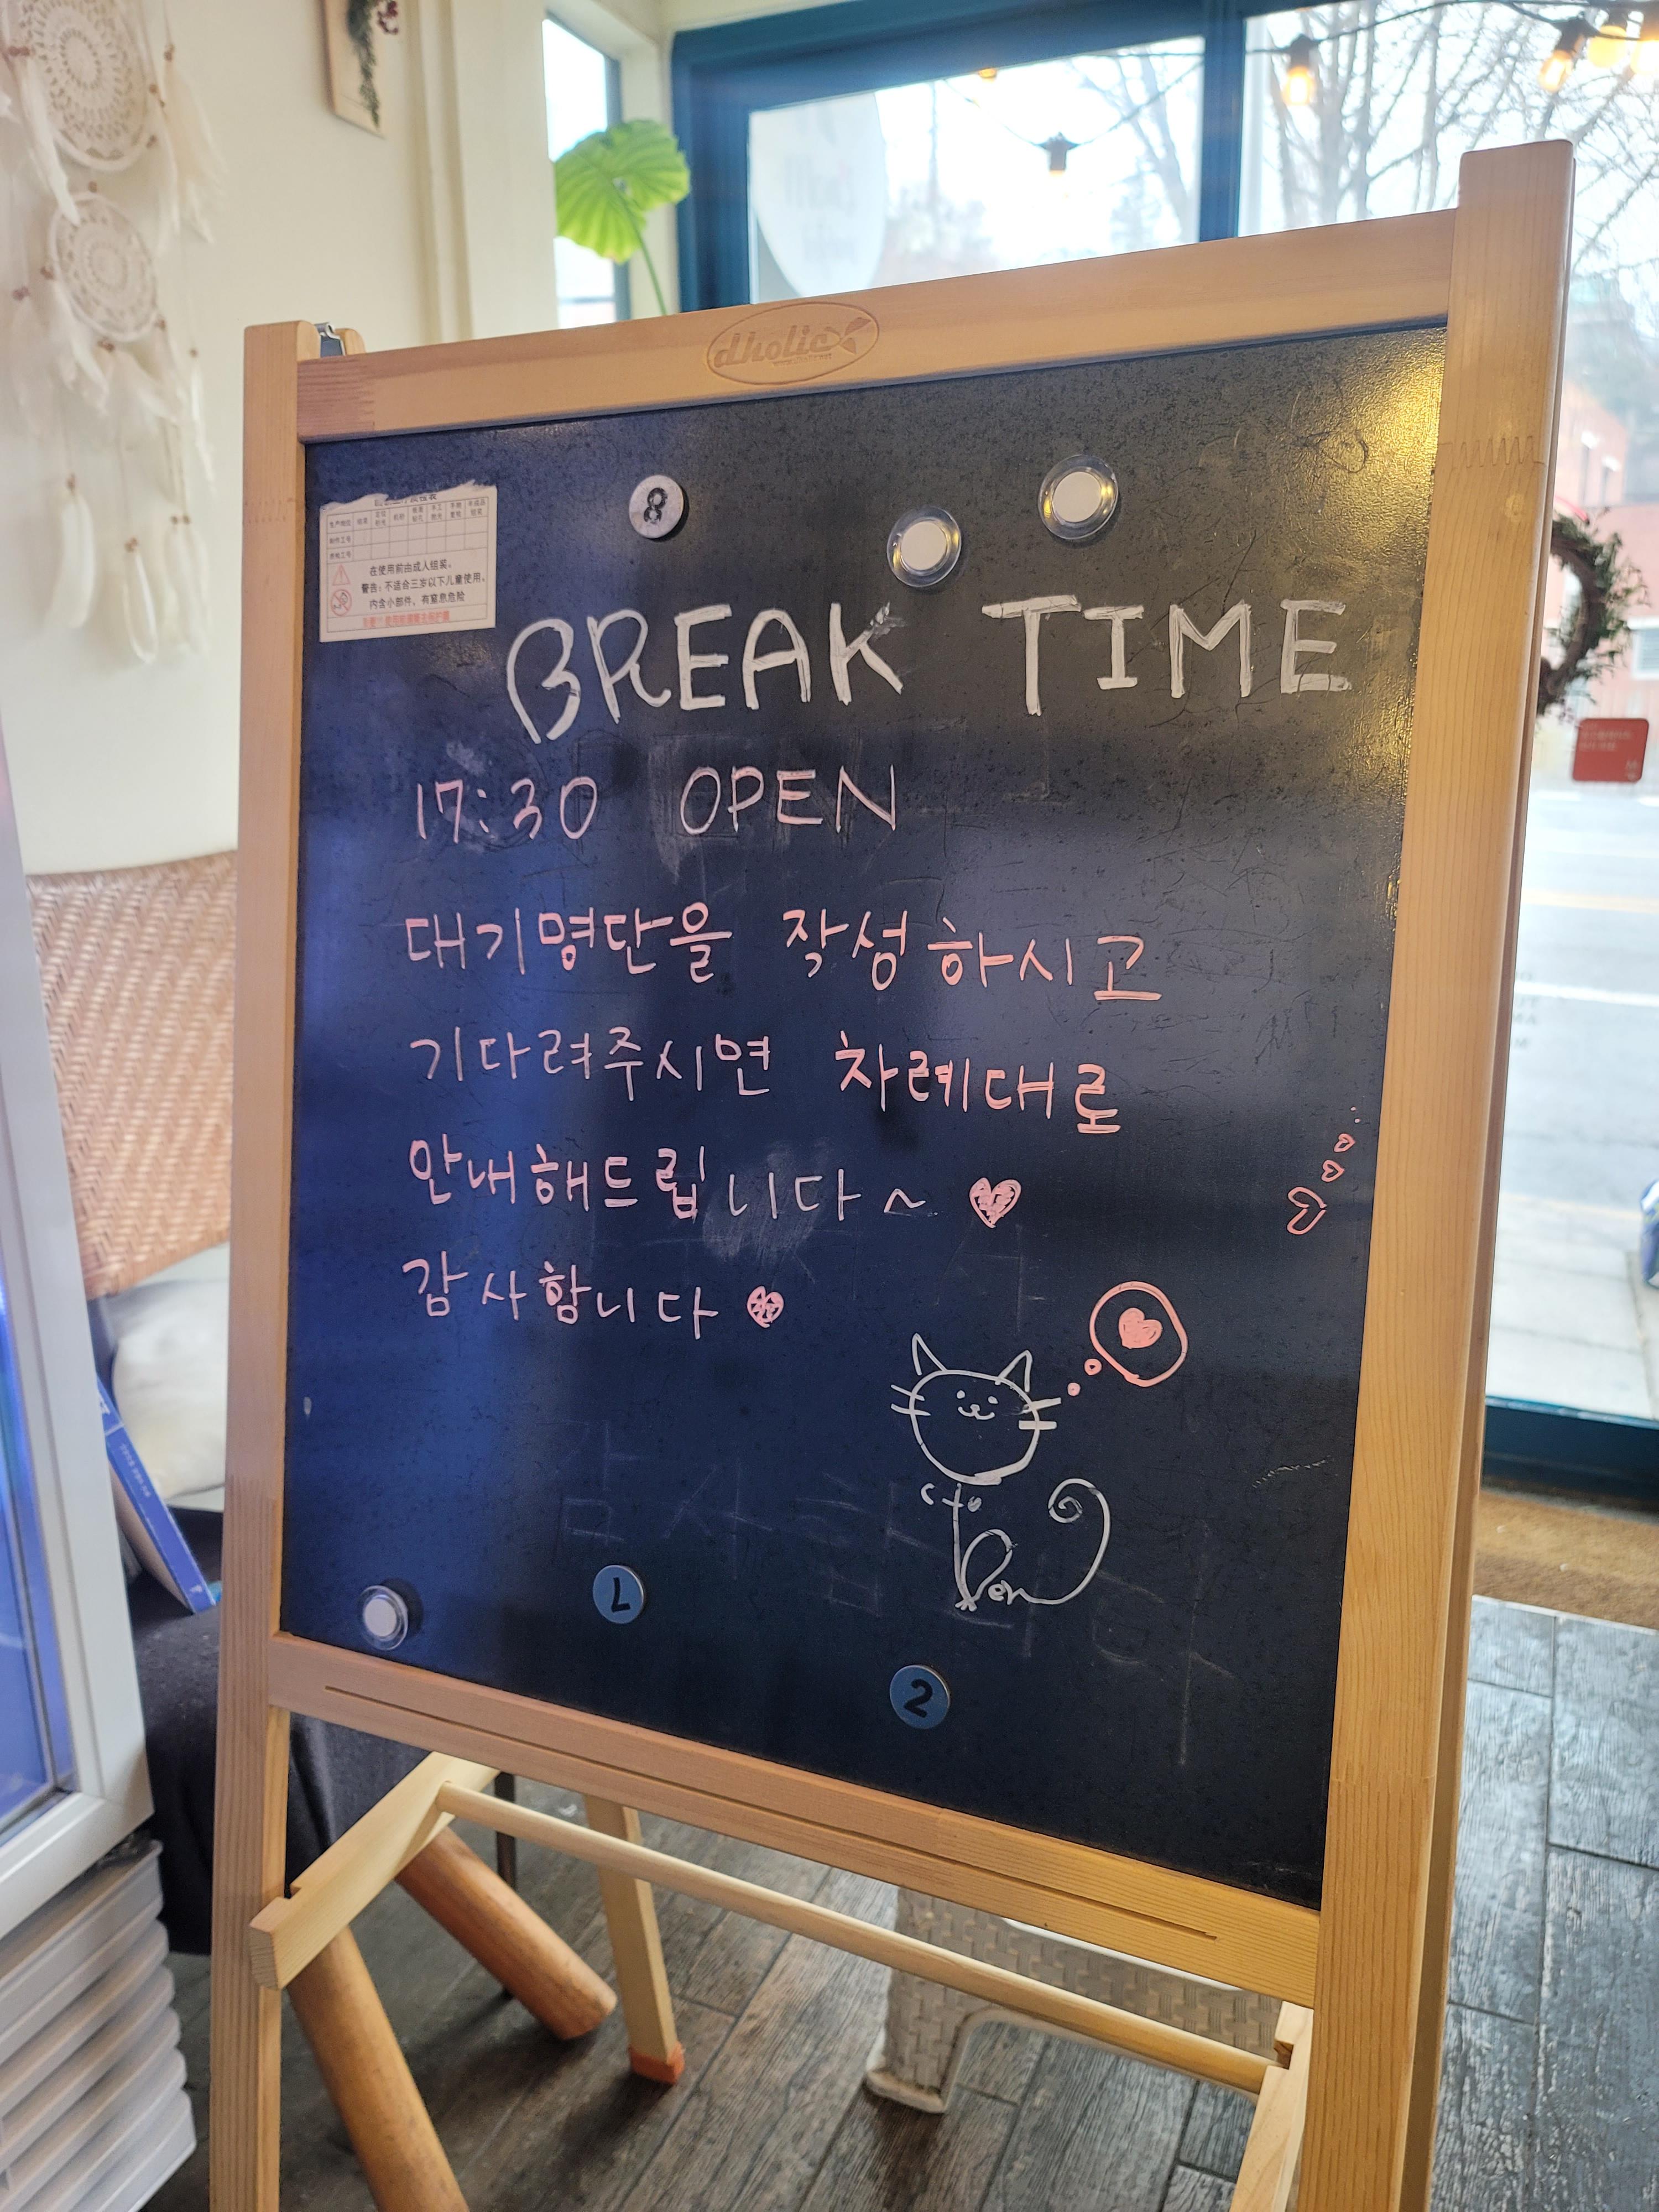 dholic
8
在使用前由成人组装、
警告：不适合三岁以下儿童使用、
内含小部件，有窒息危险
BREAK TIME
17:30 OPEN
대기명단을 작성하시고
기다려주시면 차례대로
안내해드립니다~ ♥
감사합니다 ♥
7
2